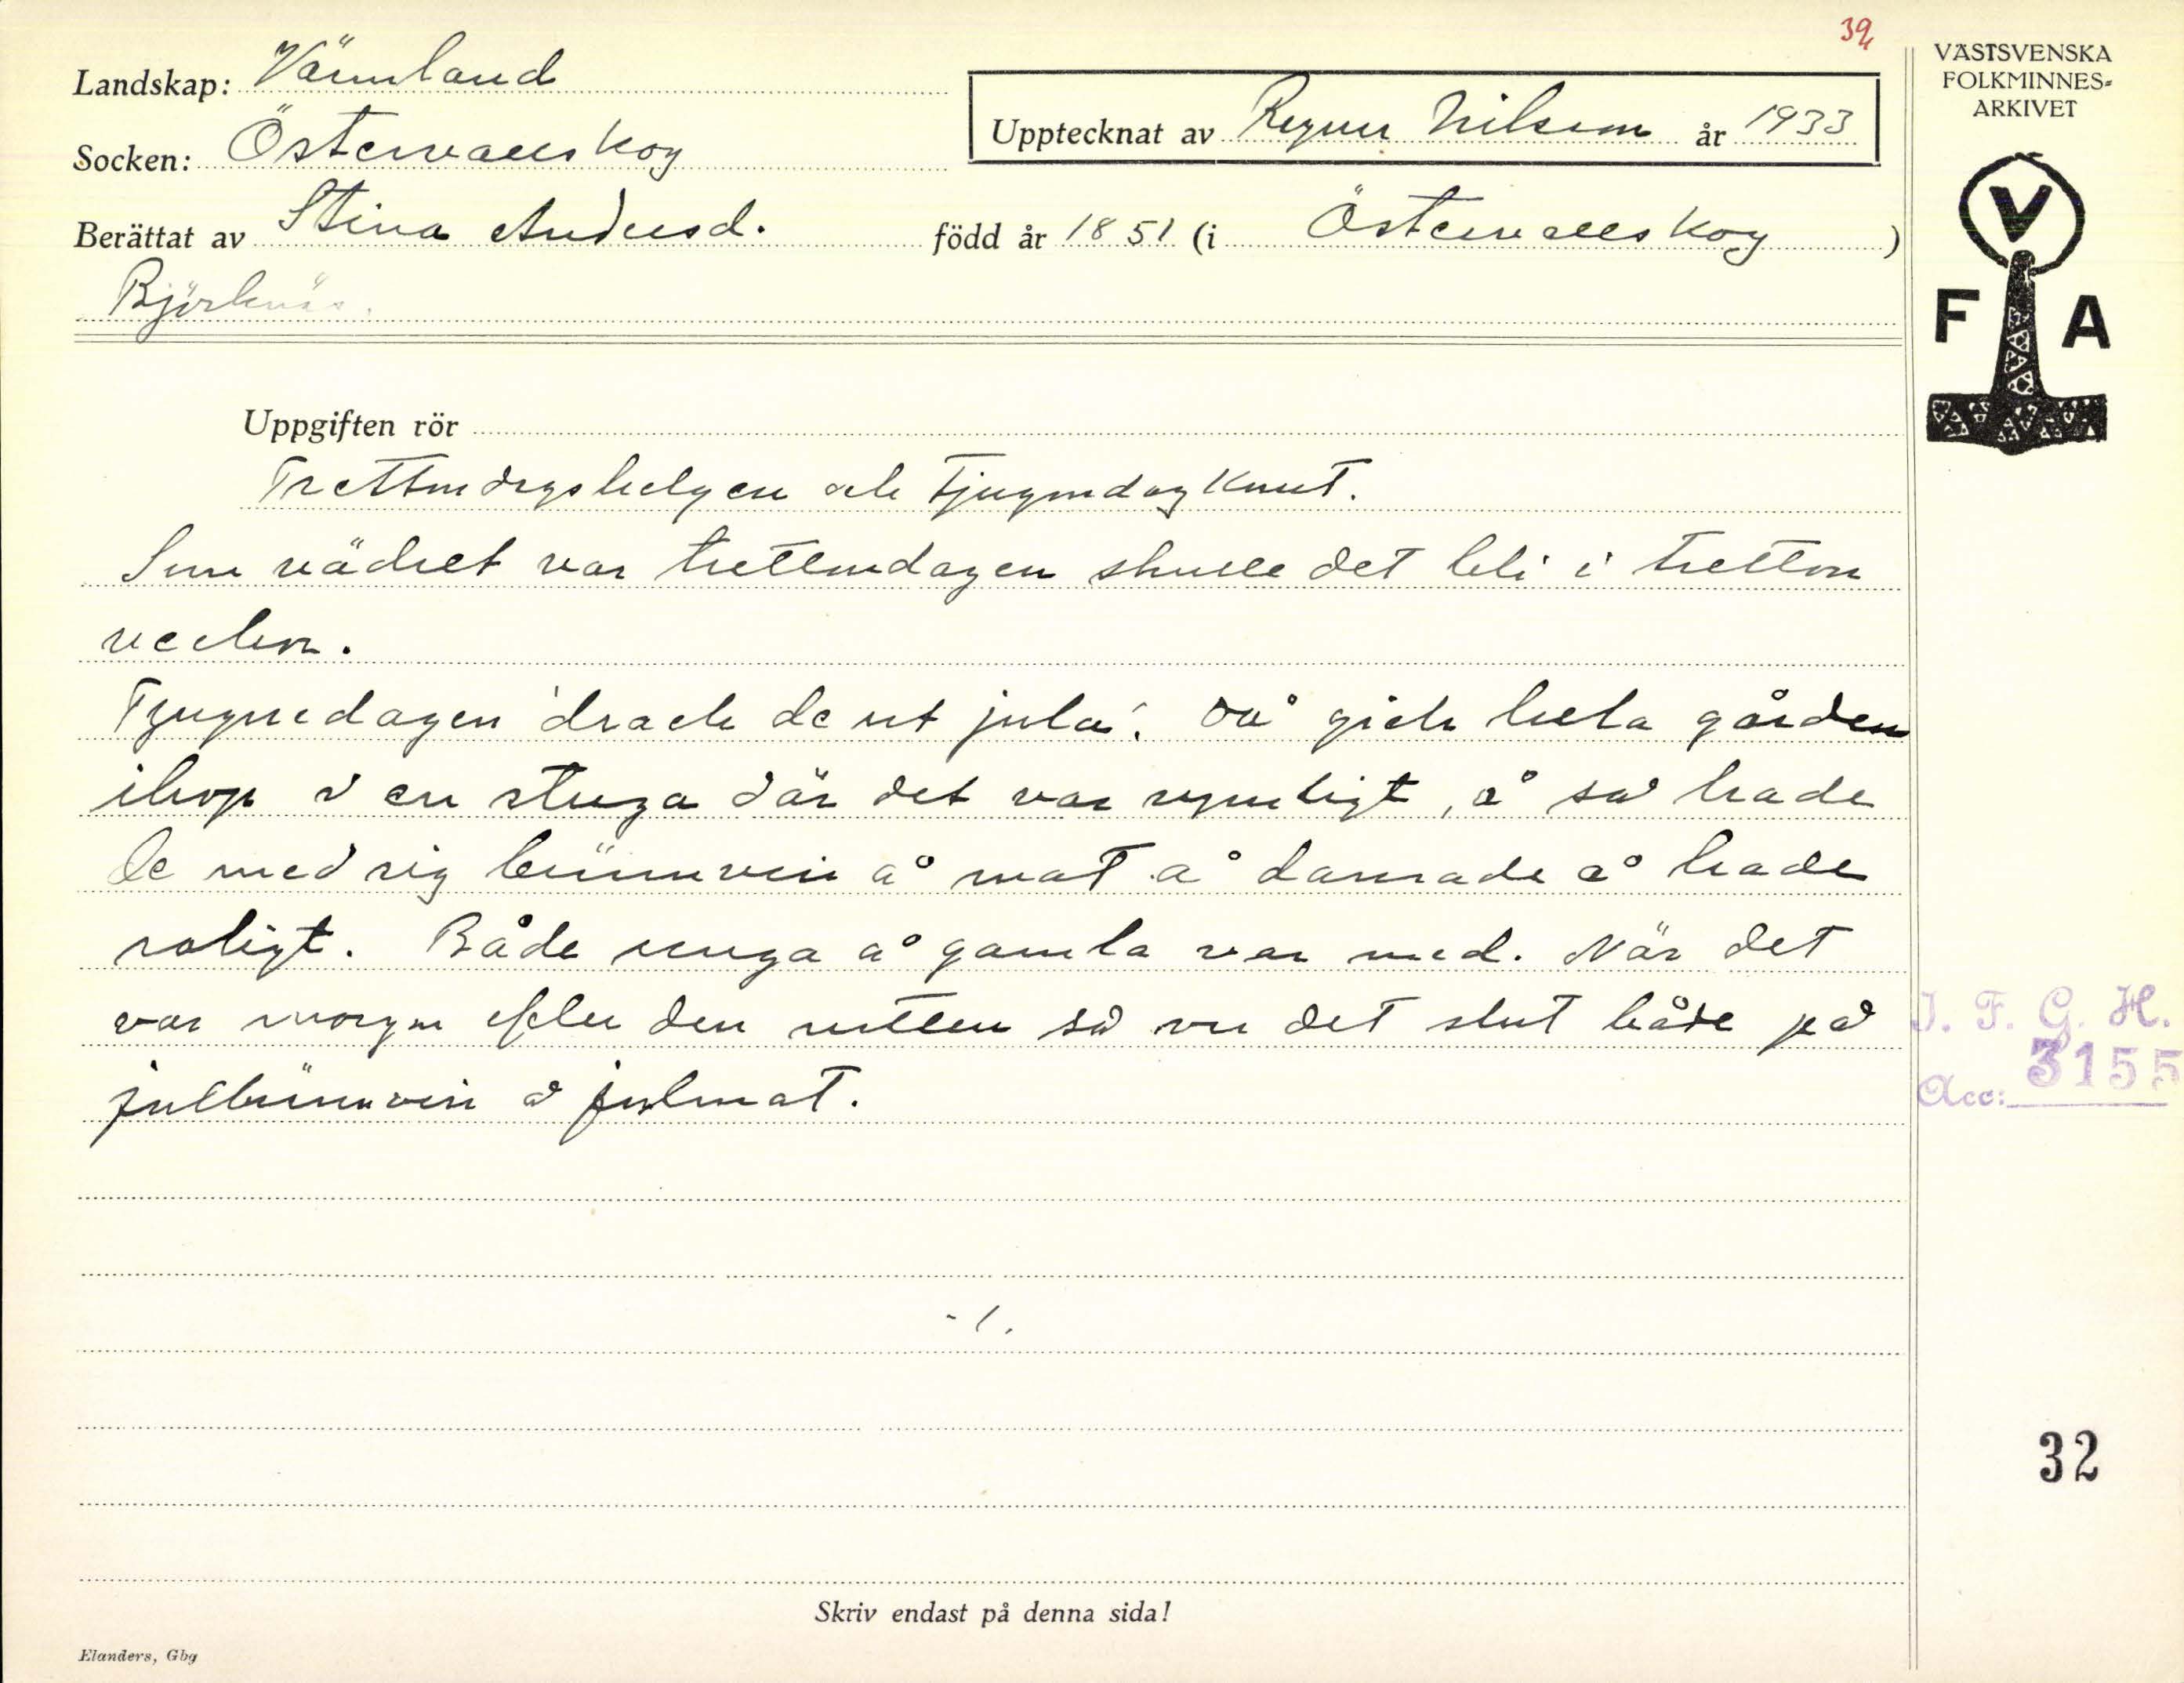 39
VÄSTSVENSKA
FOLKMINNES-
ARKIVET
Landskap: Värmland
Upptecknat av Regner Nilsson år 1933
Socken: Östervallskog
Berättat av Stina Andersd. född år 1851 (i Östervallskog)
Björknäs.
V
F A
Uppgiften rör
Trettondagshelgen och Tjugondag Knut.
Som vädret var trettondagen skulle det bli i tretton
veckor.
Tjugnedagen 'drack de ut jula'. Då gick hela gården
ihop i en stuga där det var rymligt, å så hade
de med sig brännvin å mat å dansade å hade
roligt. Både unga å gamla var med. När det
var morgon efter den natten så var det slut både på
julbrännvin å julmat.
-/.
I. F. G. H.
3155
Acc:
32
Skriv endast på denna sida!
Elanders, Gbg